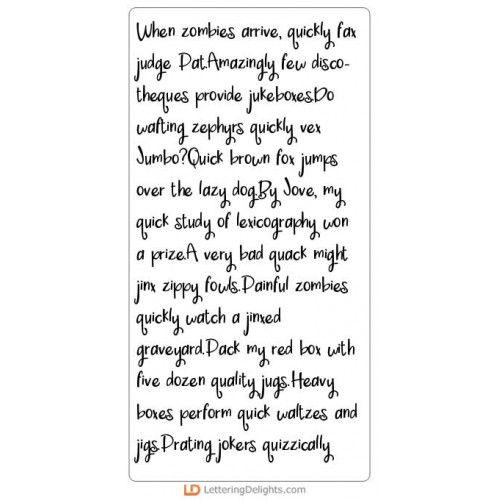 When zombies arrive, quickly fax
judge Pat.Amazingly few disco-
theques provide jukeboxes.Do
wafting zephyrs quickly vex
Jumbo?Quick brown fox jumps
over the lazy dog.By Jove, my
quick study of lexicography won
a prize.A very bad quack might
jinx zippy fowls.Painful zombies
quickly watch a jinxed
graveyard.Pack my red box with
five dozen quality jugs.Heavy
boxes perform quick waltzes and
jigs.Prating jokers quizzically
LD LetteringDelights.com